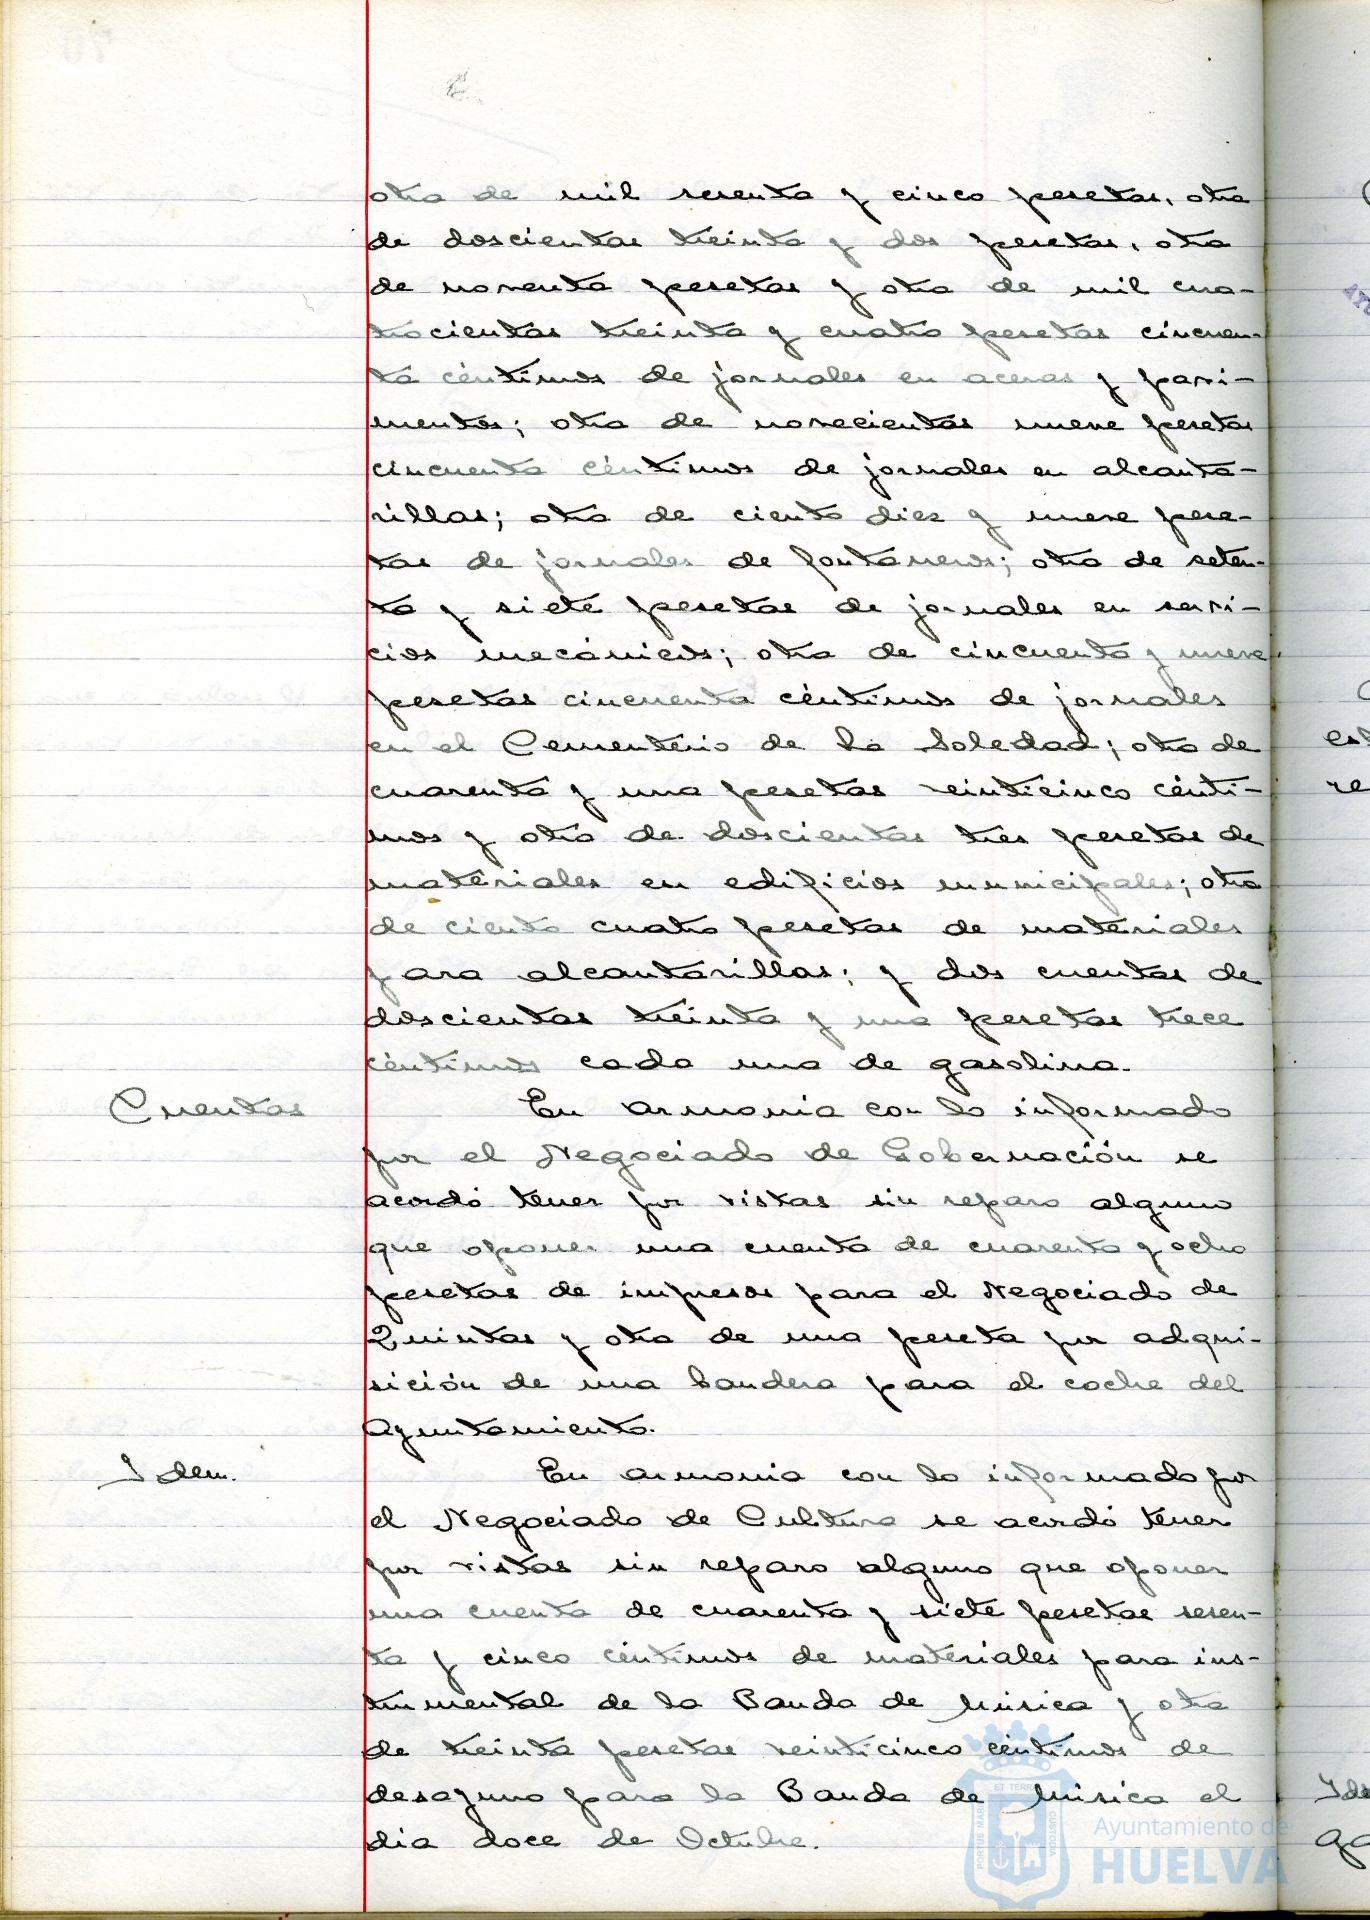 otra de mil sesenta y cinco pesetas, otra
de doscientas treinta y dos pesetas, otra
de noventa pesetas y otra de mil cua-
trocientas treinta y cuatro pesetas cincuen-
ta céntimos de jornales en aceras y pavi-
mentos; otra de novecientas nueve pesetas
cincuenta céntimos de jornales en alcanta-
rillas; otra de ciento diez y nueve pese-
tas de jornales de fontaneros; otra de seten-
ta y siete pesetas de jornales en servi-
cios mecánicos; otra de cincuenta y nueve
pesetas cincuenta céntimos de jornales
en el Cementerio de la Soledad; otra de
cuarenta y una pesetas veinticinco cénti-
mos y otra de doscientas tres pesetas de
materiales en edificios municipales; otra
de ciento cuatro pesetas de materiales
para alcantarillas; y dos cuentas de
doscientas treinta y una pesetas trece
céntimos cada una de gasolina.
Cuentas En armonia con lo informado
por el Negociado de Gobernación se
acordó tener por vistas sin reparo alguno
que oponer una cuenta de cuarenta y ocho
pesetas de impresos para el Negociado de
Quintas y otra de una peseta por adqui-
sición de una bandera para el coche del
Ayuntamiento.
Idem. En armonia con lo informado por
el Negociado de Cultura se acordó tener
por vistas sin reparo alguno que oponer
una cuenta de cuarenta y siete pesetas sesen-
ta y cinco céntimos de materiales para ins-
trumental de la Banda de Música y otra
de treinta pesetas veinticinco céntimos de
desayuno para la Banda de Música el
dia doce de Octubre.
PORTUS MARIS ET TERRAE CUSTODIA
Ayuntamiento de
HUELVA